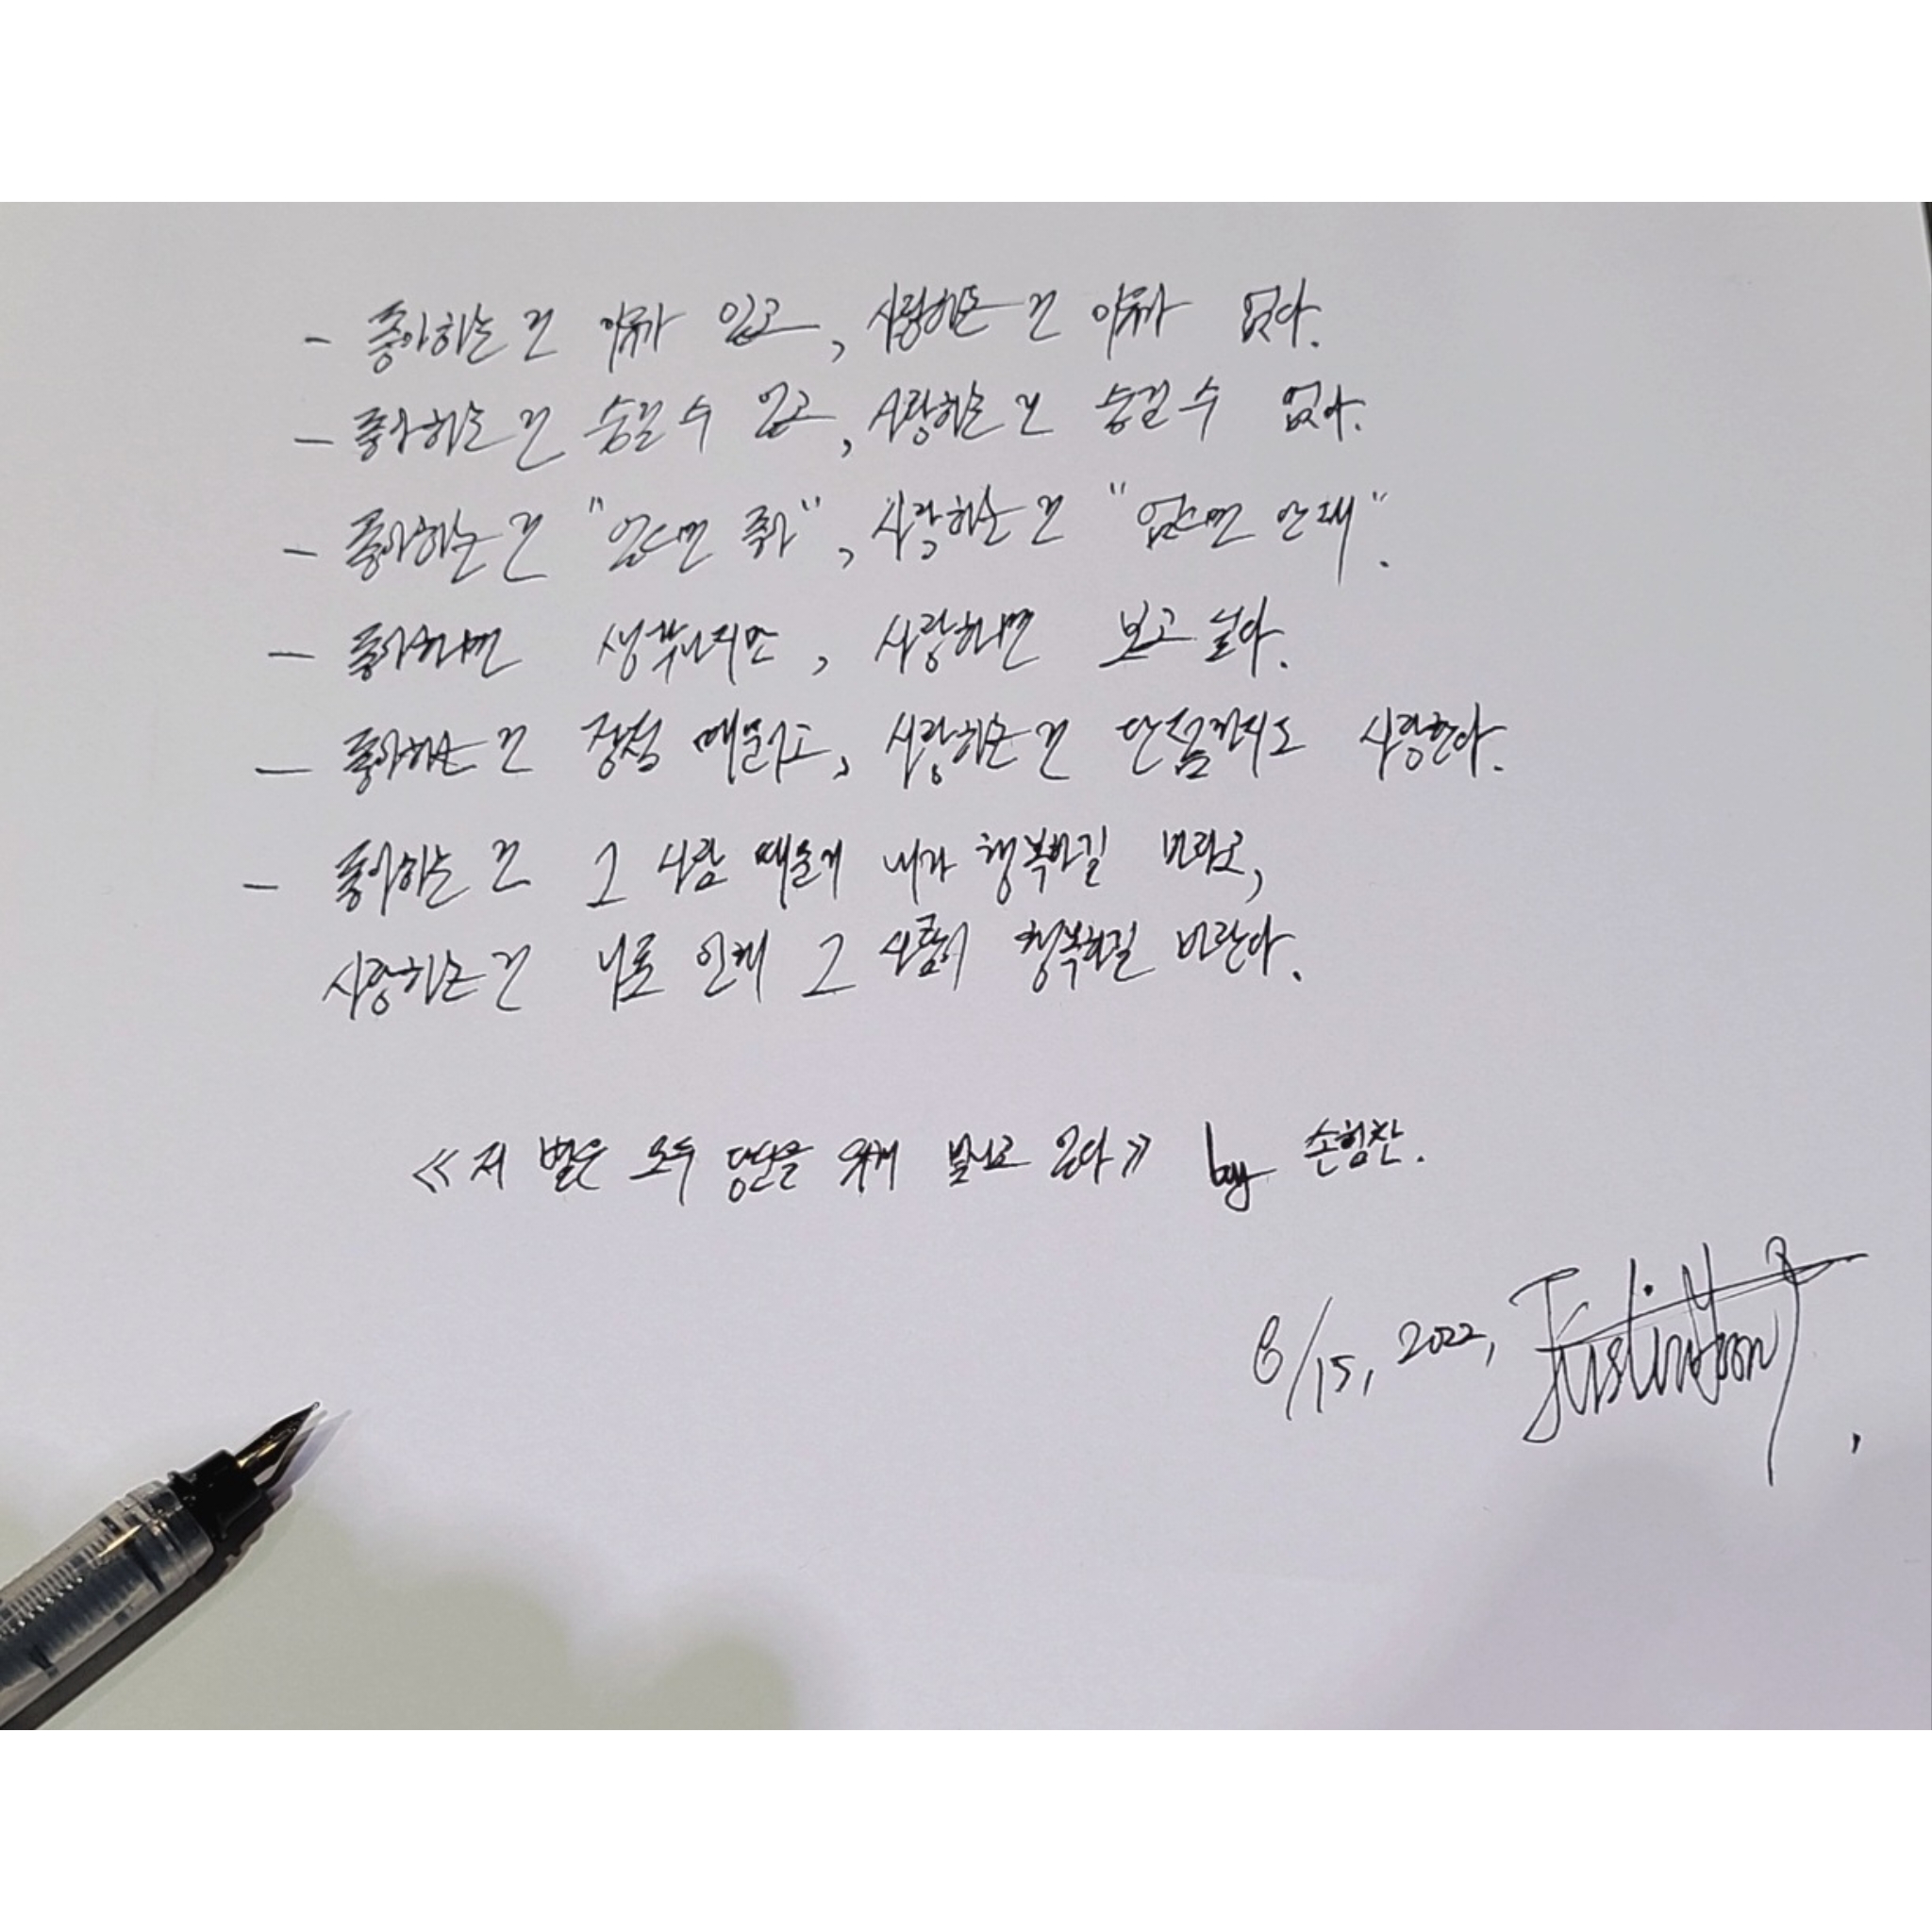 - 좋아하는 건 이유가 있고, 사랑하는 건 이유가 없다.
- 좋아하는 건 숨길 수 있고, 사랑하는 건 숨길 수 없다.
- 좋아하는 건 "있으면 좋아", 사랑하는 건 "없으면 안돼".
- 좋아하면 생각나지만, 사랑하면 보고 싶다.
- 좋아하는 건 장점 때문이고, 사랑하는 건 단점까지도 사랑한다.
- 좋아하는 건 그 사람 때문에 내가 행복하길 바라고,
사랑하는 건 나로 인해 그 사람이 행복하길 바란다.
≪저 별은 모두 당신을 위해 빛나고 있다≫ by 손힘찬.
6/15, 2022, Justin Yoon